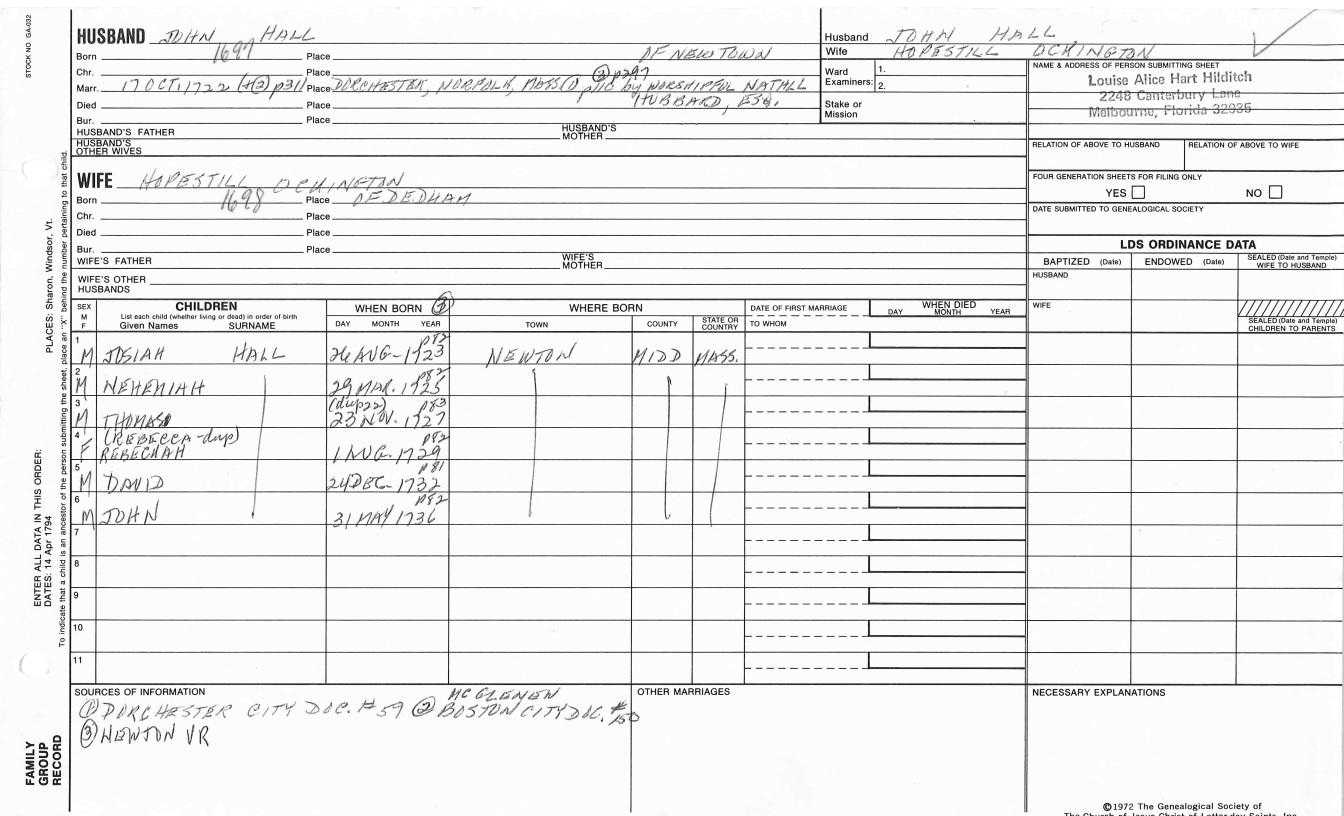 STOCK NO. GA-032
HUSBAND JOHN HALL
Born 1697 Place OF NEWTOWN
Chr. Place
Marr. 17 OCT. 1722 (+② p311 Place DORCHESTER, NORFOLK, MASS ① p110 by WORSHIPFUL NATHLL
② p297
HUBBARD, ESQ.
Died Place
Bur. Place
HUSBAND'S FATHER HUSBAND'S MOTHER
HUSBAND'S OTHER WIVES
WIFE HOPESTILL OCKINGTON
Born 1698 Place OF DEDHAM
Chr. Place
Died Place
Bur. Place
WIFE'S FATHER WIFE'S MOTHER
WIFE'S OTHER HUSBANDS
Husband JOHN HALL
Wife HOPESTILL OCKINGTON
Ward Examiners: 1.
2.
Stake or Mission
NAME & ADDRESS OF PERSON SUBMITTING SHEET
Louise Alice Hart Hilditch
2248 Canterbury Lane
Melbourne, Florida 32935
RELATION OF ABOVE TO HUSBAND RELATION OF ABOVE TO WIFE
FOUR GENERATION SHEETS FOR FILING ONLY
YES NO
DATE SUBMITTED TO GENEALOGICAL SOCIETY
LDS ORDINANCE DATA
BAPTIZED (Date) ENDOWED (Date) SEALED (Date and Temple) WIFE TO HUSBAND
HUSBAND
WIFE
SEALED (Date and Temple) CHILDREN TO PARENTS
SEX M F CHILDREN WHEN BORN ③ WHERE BORN DATE OF FIRST MARRIAGE WHEN DIED
List each child (whether living or dead) in order of birth
Given Names SURNAME DAY MONTH YEAR TOWN COUNTY STATE OR COUNTRY TO WHOM DAY MONTH YEAR
1 M JOSIAH HALL 26 AUG-1723 p82 NEWTON MIDD MASS.
2 M NEHEMIAH 29 MAR. 1725 p82
3 M THOMAS (dup 22) 23 NOV. 1727 p83
4 F (REBECCA-dup) REBECKAH 1 AUG. 1729 p82
5 M DAVID 24 DEC- 1732 p81
6 M JOHN 31 MAY 1736 p82
7
8
9
10
11
SOURCES OF INFORMATION
① DORCHESTER CITY DOC. #59 ② MCGLENEN BOSTON CITY DOC. #150
③ NEWTON VR
OTHER MARRIAGES
NECESSARY EXPLANATIONS
PLACES: Sharon, Windsor, Vt.
ENTER ALL DATA IN THIS ORDER:
DATES: 14 Apr 1794
To indicate that a child is an ancestor of the person submitting the sheet, place an "X" behind the number pertaining to that child.
FAMILY GROUP RECORD
©1972 The Genealogical Society of
The Church of Jesus Christ of Latter-day Saints, Inc.